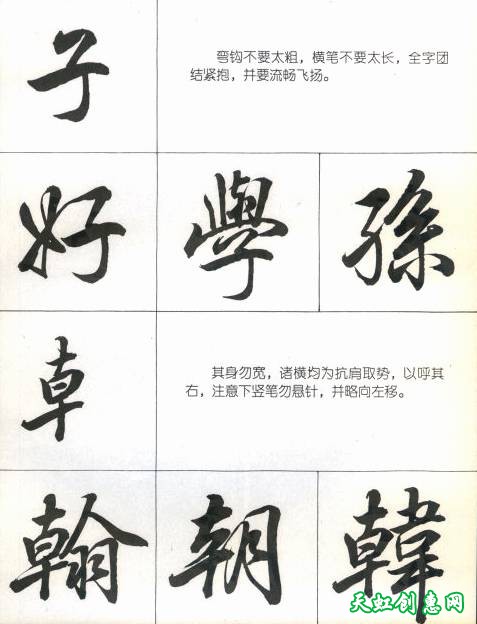 子
弯钩不要太粗，横笔不要太长，全字团
结紧抱，并要流畅飞扬。
好 學 孫
卓
其身勿宽，诸横均为抗肩取势，以呼其
右，注意下竖笔勿悬针，并略向左移。
翰 朝 韓
天虹创意网